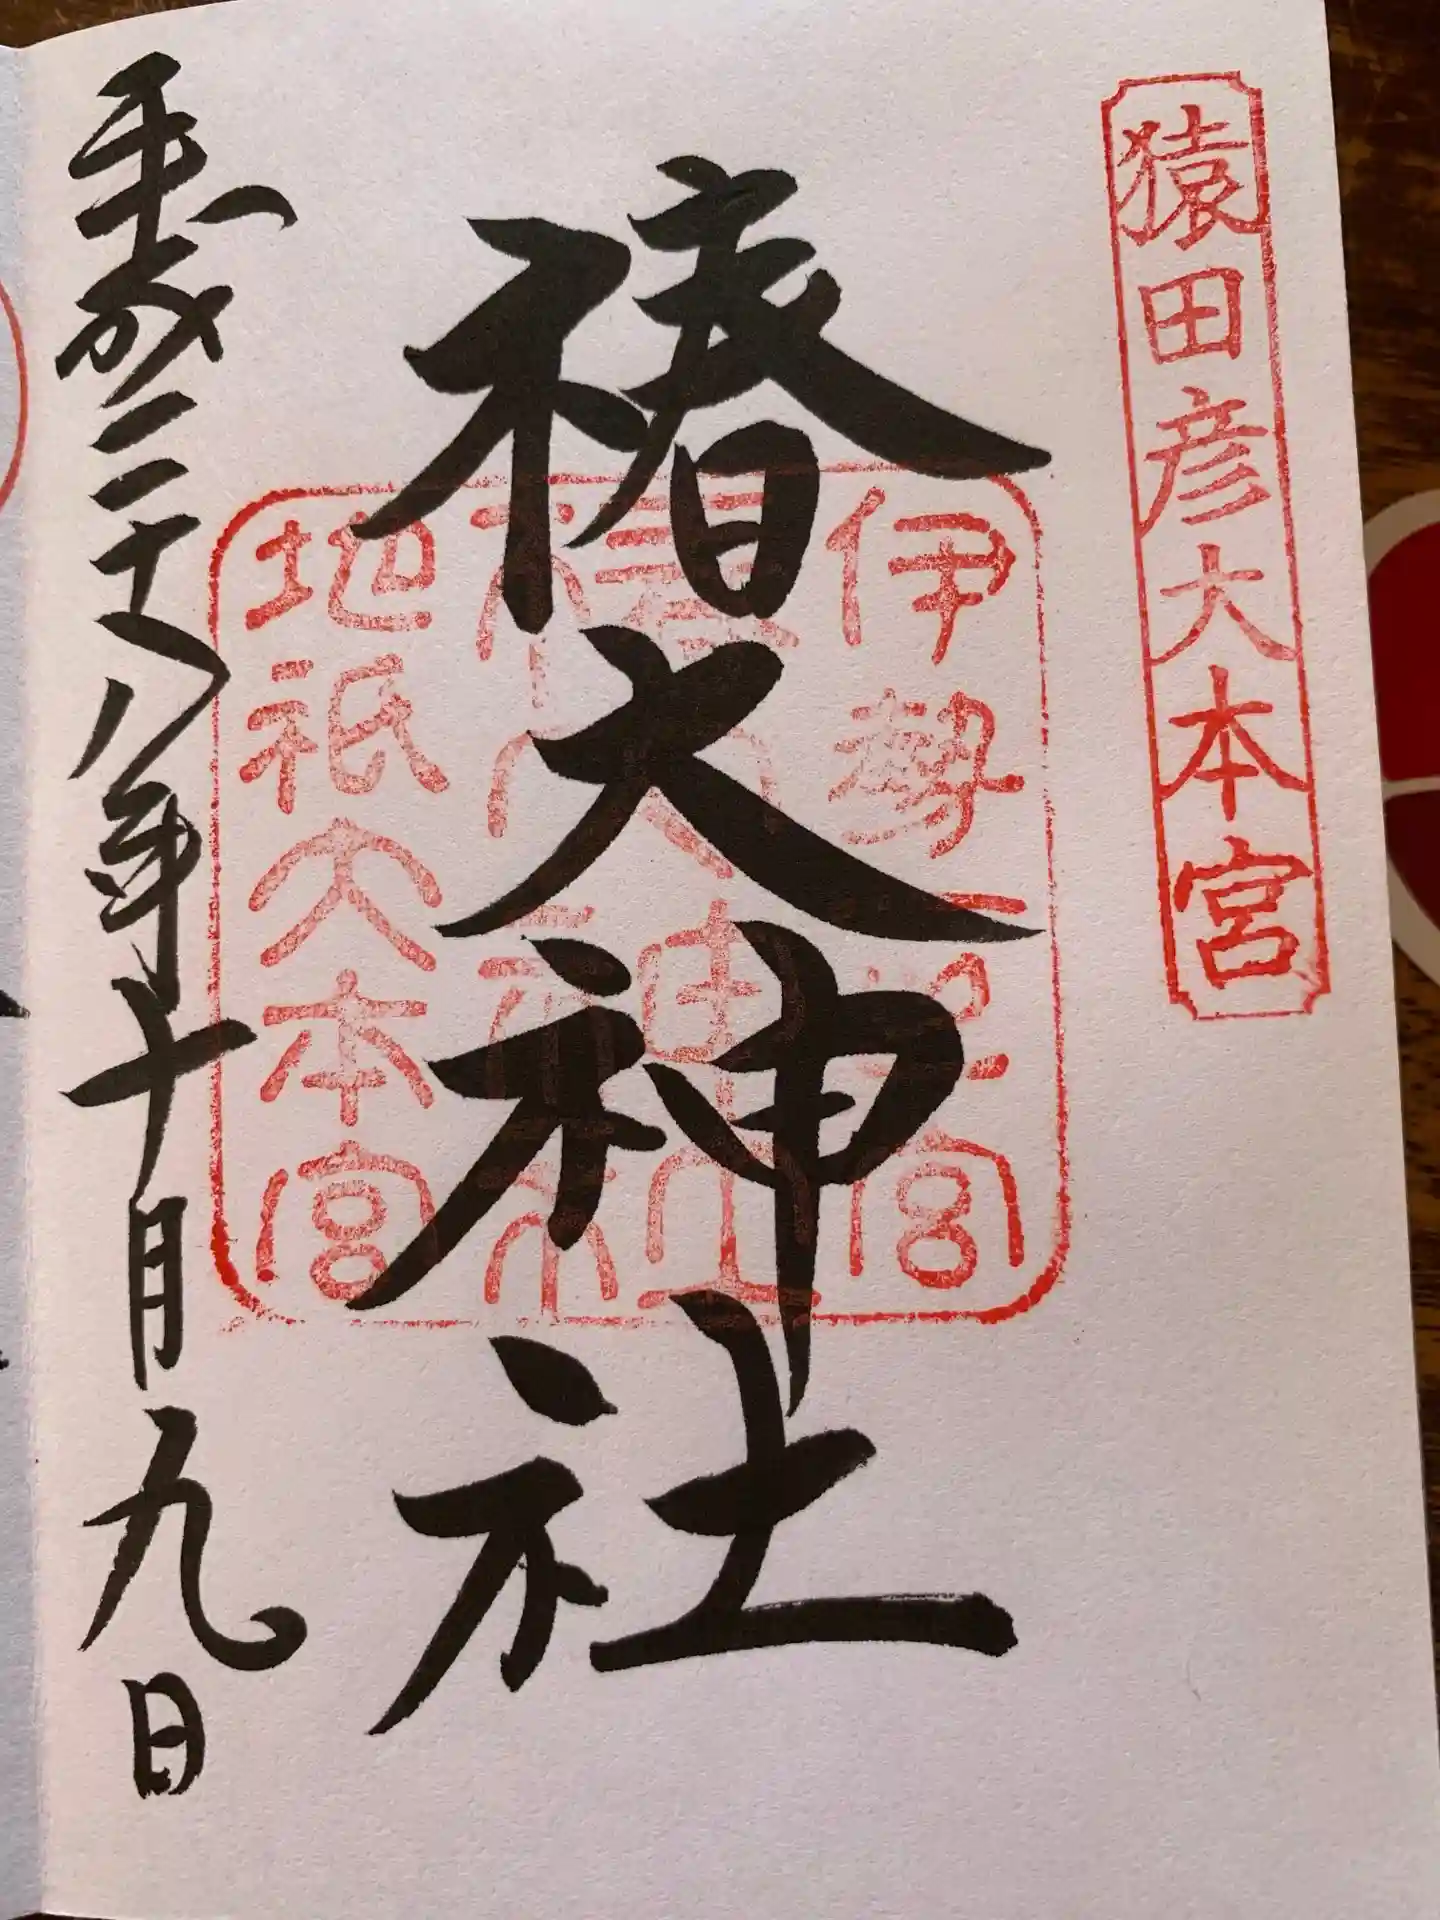 猿田彦大本宮
椿大神社
伊勢一之宮
椿大神社
地祇大本宮
平成二十八年十月九日